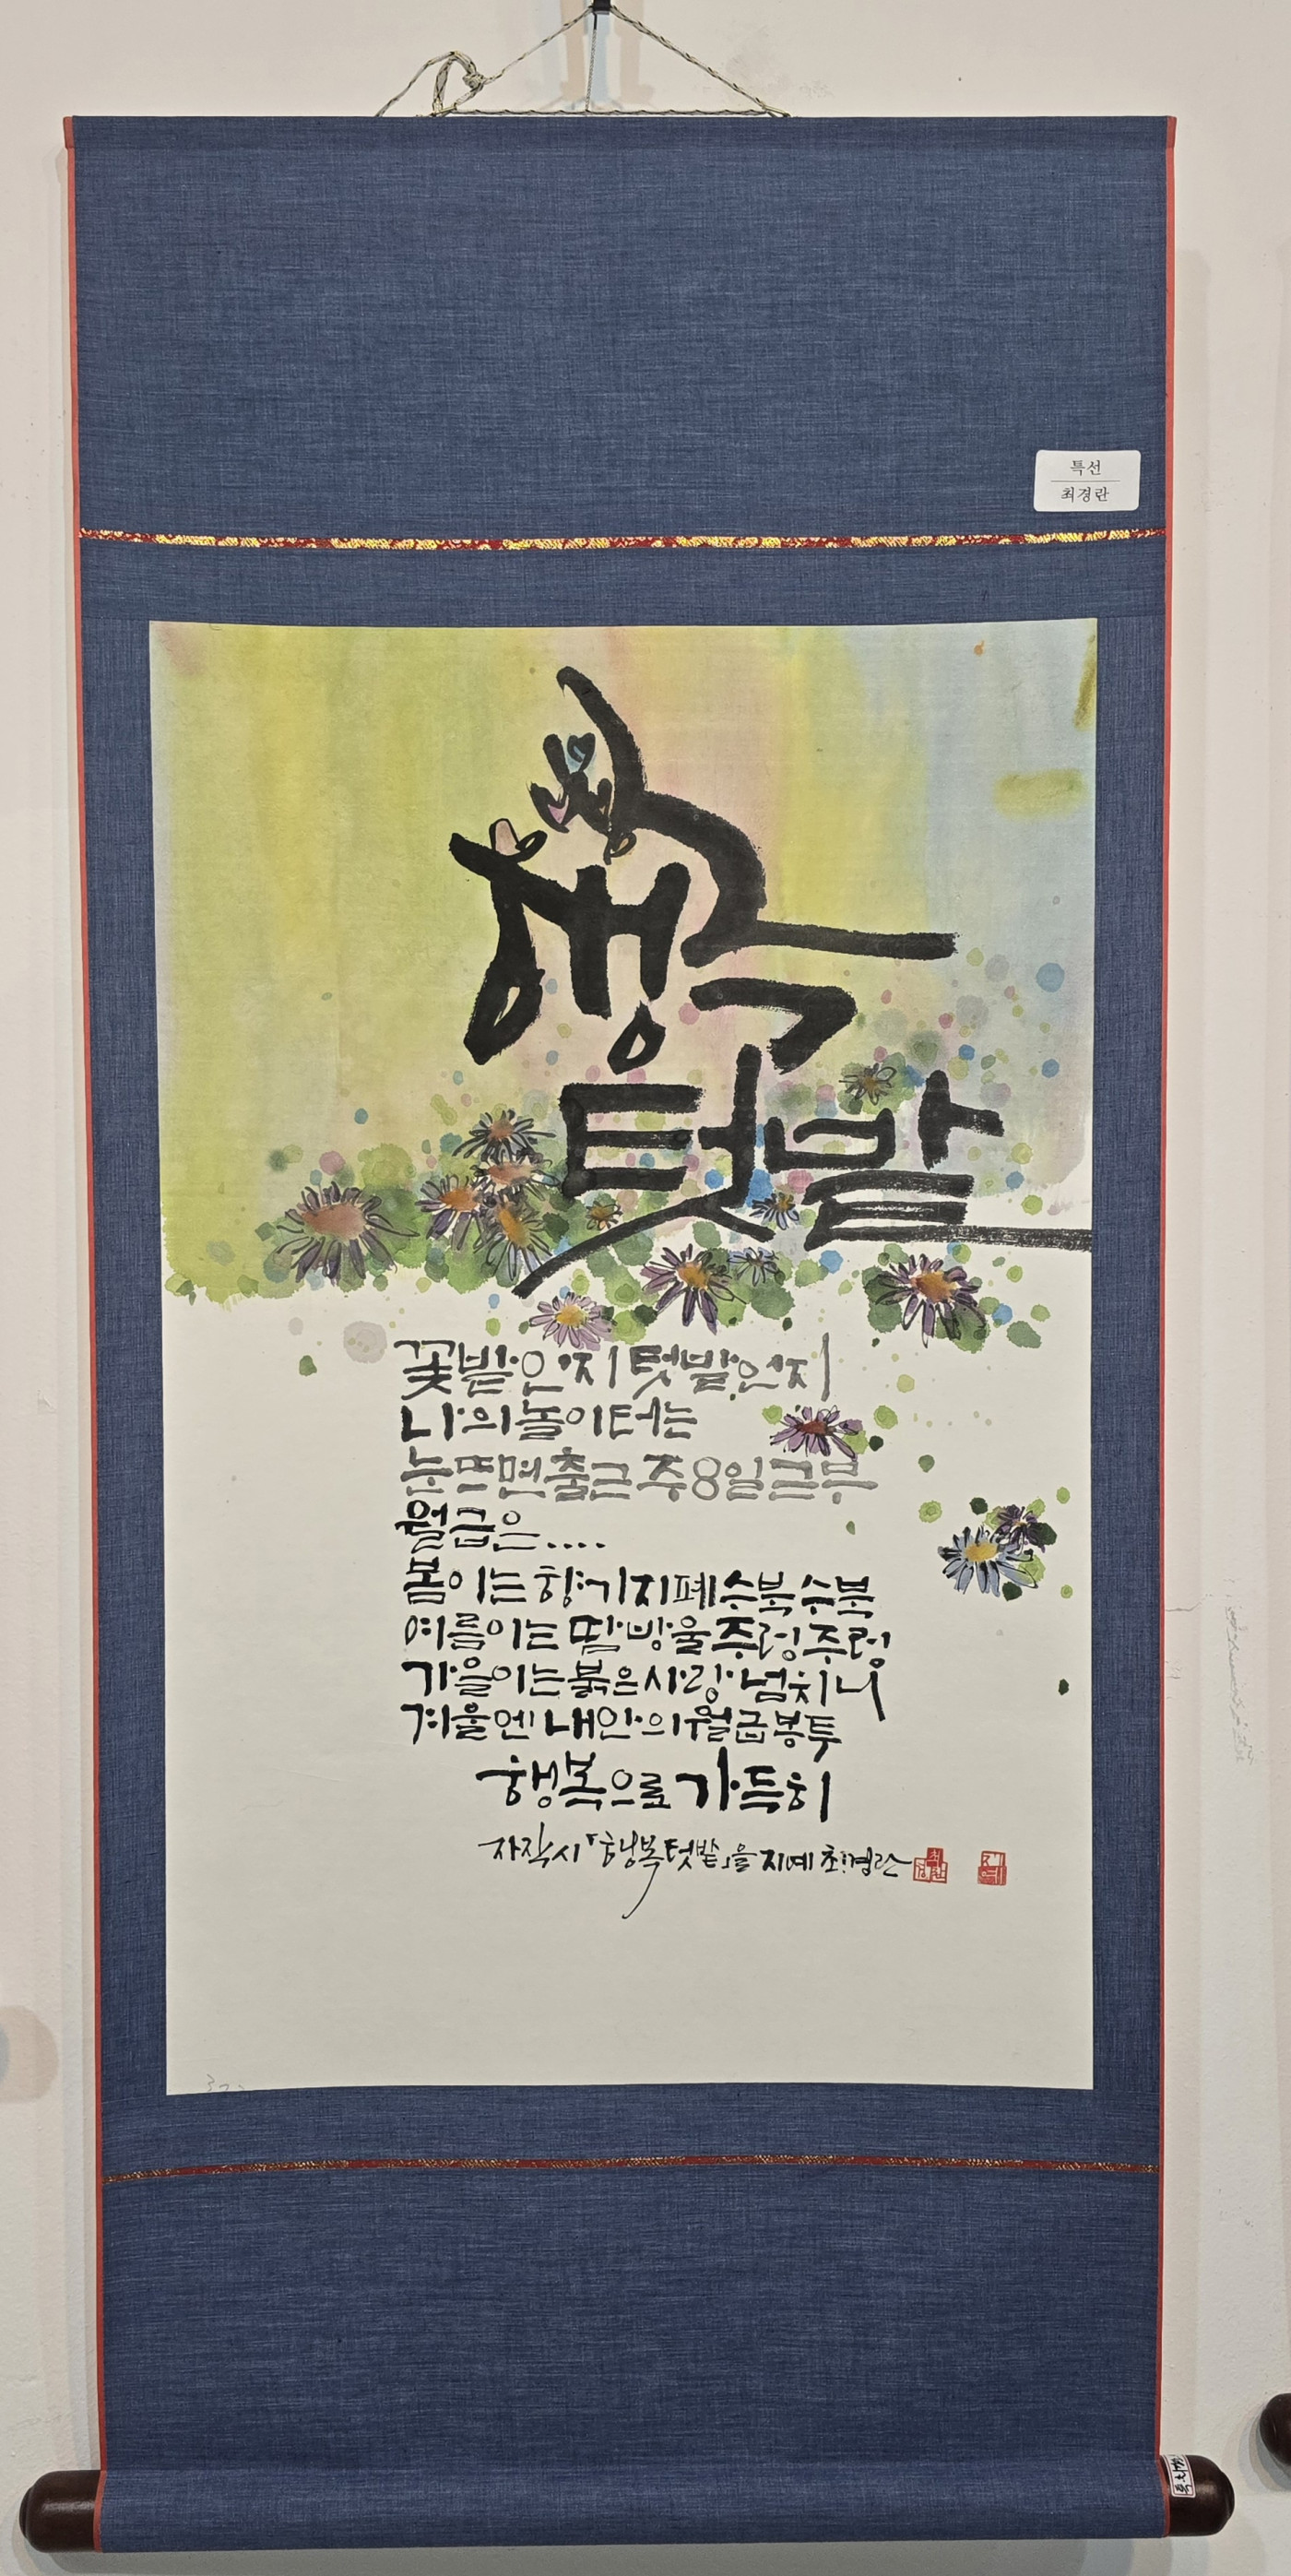 특선
최경란
행복
텃밭
꽃밭인지 텃밭인지
나의 놀이터는
눈뜨면 출근 주8일 근무
월급은....
봄이는 향기지폐 수북수북
여름이는 땀방울 주렁주렁
가을이는 붉은 사랑 넘치니
겨울엔 내안의 월급봉투
행복으로 가득히
자작시「행복텃밭」을 지예 최경란